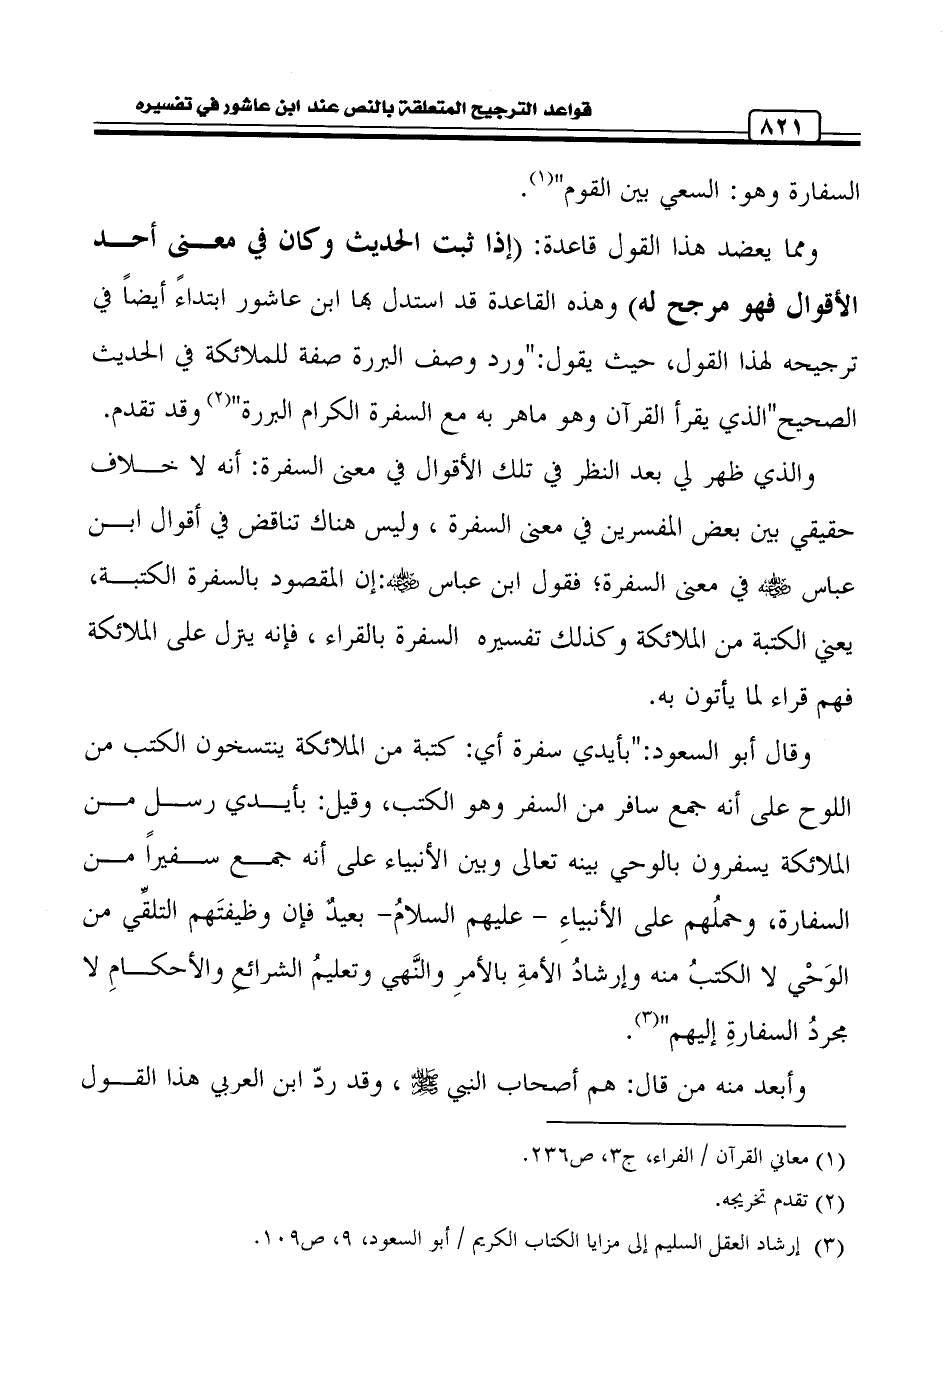 قواعد الترجيح المتعلقة بالنص عند ابن عاشور في تفسيره
٨٢١
السفارة وهو: السعي بين القوم"(١).
ومما يعضد هذا القول قاعدة: (إذا ثبت الحديث وكان في معنى أحـــد
الأقوال فهو مرجح له) وهذه القاعدة قد استدل بها ابن عاشور ابتداءً أيضاً في
ترجيحه لهذا القول، حيث يقول:"ورد وصف البررة صفة للملائكة في الحديث
الصحيح"الذي يقرأ القرآن وهو ماهر به مع السفرة الكرام البررة"(٢) وقد تقدم.
والذي ظهر لي بعد النظر في تلك الأقوال في معنى السفرة: أنه لا خـــلاف
حقيقي بين بعض المفسرين في معنى السفرة ، وليس هناك تناقض في أقوال ابـــن
عباس ﵁ في معنى السفرة؛ فقول ابن عباس ﵁:إن المقصود بالسفرة الكتبـــة،
يعني الكتبة من الملائكة وكذلك تفسيره السفرة بالقراء ، فإنه ينزل على الملائكة
فهم قراء لما يأتون به.
وقال أبو السعود:"بأيدي سفرة أي: كتبة من الملائكة ينتسخون الكتب من
اللوح على أنه جمع سافر من السفر وهو الكتب، وقيل: بأيـــدي رســـل مـــن
الملائكة يسفرون بالوحي بينه تعالى وبين الأنبياء على أنه جمـــع ســـفيراً مـــن
السفارة، وحملُهم على الأنبياءِ - عليهم السلامُ- بعيدٌ فإن وظيفتَهم التلقِّي من
الوَحْي لا الكتبُ منه وإرشادُ الأمةِ بالأمرِ والنَّهي وتعليمُ الشرائعِ والأحكـــامِ لا
مجردُ السفارةِ إليهم"(٣).
وأبعد منه من قال: هم أصحاب النبي ﷺ ، وقد ردّ ابن العربي هذا القـــول
(١) معاني القرآن / الفراء، ج٣، ص٢٣٦.
(٢) تقدم تخريجه.
(٣) إرشاد العقل السليم إلى مزايا الكتاب الكريم / أبو السعود، ٩، ص١٠٩.